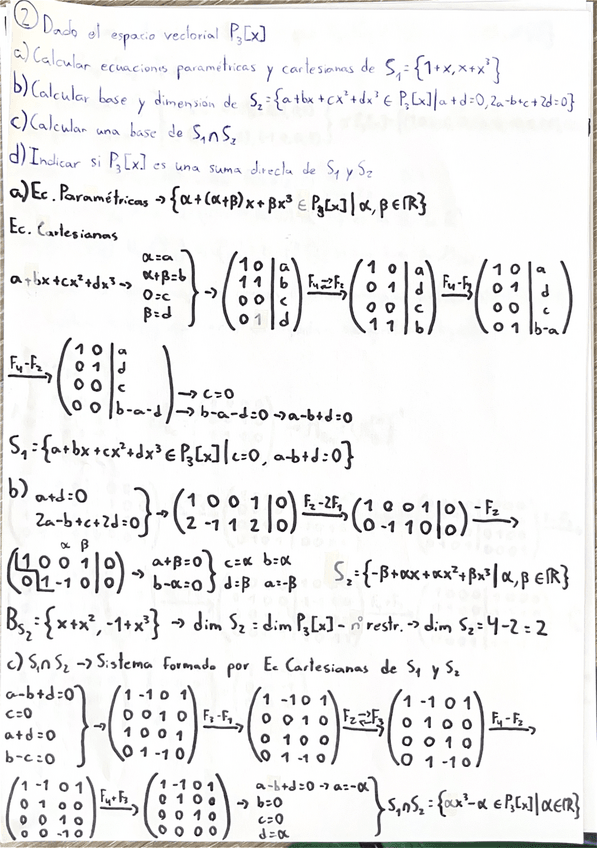 ② Dado el espacio vectorial P₃[x]
a) Calcular ecuaciones paramétricas y cartesianas de S₁={1+x, x+x³}
b) Calcular base y dimensión de S₂={a+bx+cx²+dx³ ∈ P₃[x] | a+d=0, 2a-b+c+2d=0}
c) Calcular una base de S₁∩S₂
d) Indicar si P₃[x] es una suma directa de S₁ y S₂
a) Ec. Paramétricas → {α+(α+β)x+βx³ ∈ P₃[x] | α, β ∈ ℝ}
Ec. Cartesianas
a+bx+cx²+dx³ → α=a α+β=b 0=c β=d } → (1 0 | a; 1 1 | b; 0 0 | c; 0 1 | d) F₄⇄F₂ → (1 0 | a; 0 1 | d; 0 0 | c; 1 1 | b) F₄-F₁ → (1 0 | a; 0 1 | d; 0 0 | c; 0 1 | b-a)
F₄-F₂ → (1 0 | a; 0 1 | d; 0 0 | c; 0 0 | b-a-d) → c=0 → b-a-d=0 → a-b+d=0
S₁={a+bx+cx²+dx³ ∈ P₃[x] | c=0, a-b+d=0}
b) a+d=0 2a-b+c+2d=0 } → (1 0 0 1 | 0; 2 -1 1 2 | 0) F₂-2F₁ → (1 0 0 1 | 0; 0 -1 1 0 | 0) -F₂ →
α β (1 0 0 1 | 0; 0 1 -1 0 | 0) → a+β=0 b-α=0 } c=α b=α d=β a=-β S₂={-β+αx+αx²+βx³ | α, β ∈ ℝ}
B_S₂={x+x², -1+x³} → dim S₂=dim P₃[x] - nº restr. → dim S₂=4-2=2
c) S₁∩S₂ → Sistema formado por Ec Cartesianas de S₁ y S₂
a-b+d=0 c=0 a+d=0 b-c=0 } → (1 -1 0 1; 0 0 1 0; 1 0 0 1; 0 1 -1 0) F₃-F₁ → (1 -1 0 1; 0 0 1 0; 0 1 0 0; 0 1 -1 0) F₂⇄F₃ → (1 -1 0 1; 0 1 0 0; 0 0 1 0; 0 1 -1 0) F₄-F₂ →
(1 -1 0 1; 0 1 0 0; 0 0 1 0; 0 0 -1 0) F₄+F₃ → (1 -1 0 1; 0 1 0 0; 0 0 1 0; 0 0 0 0) → a-b+d=0 → a=-α b=0 c=0 d=α } S₁∩S₂={αx³-α ∈ P₃[x] | α∈ℝ}